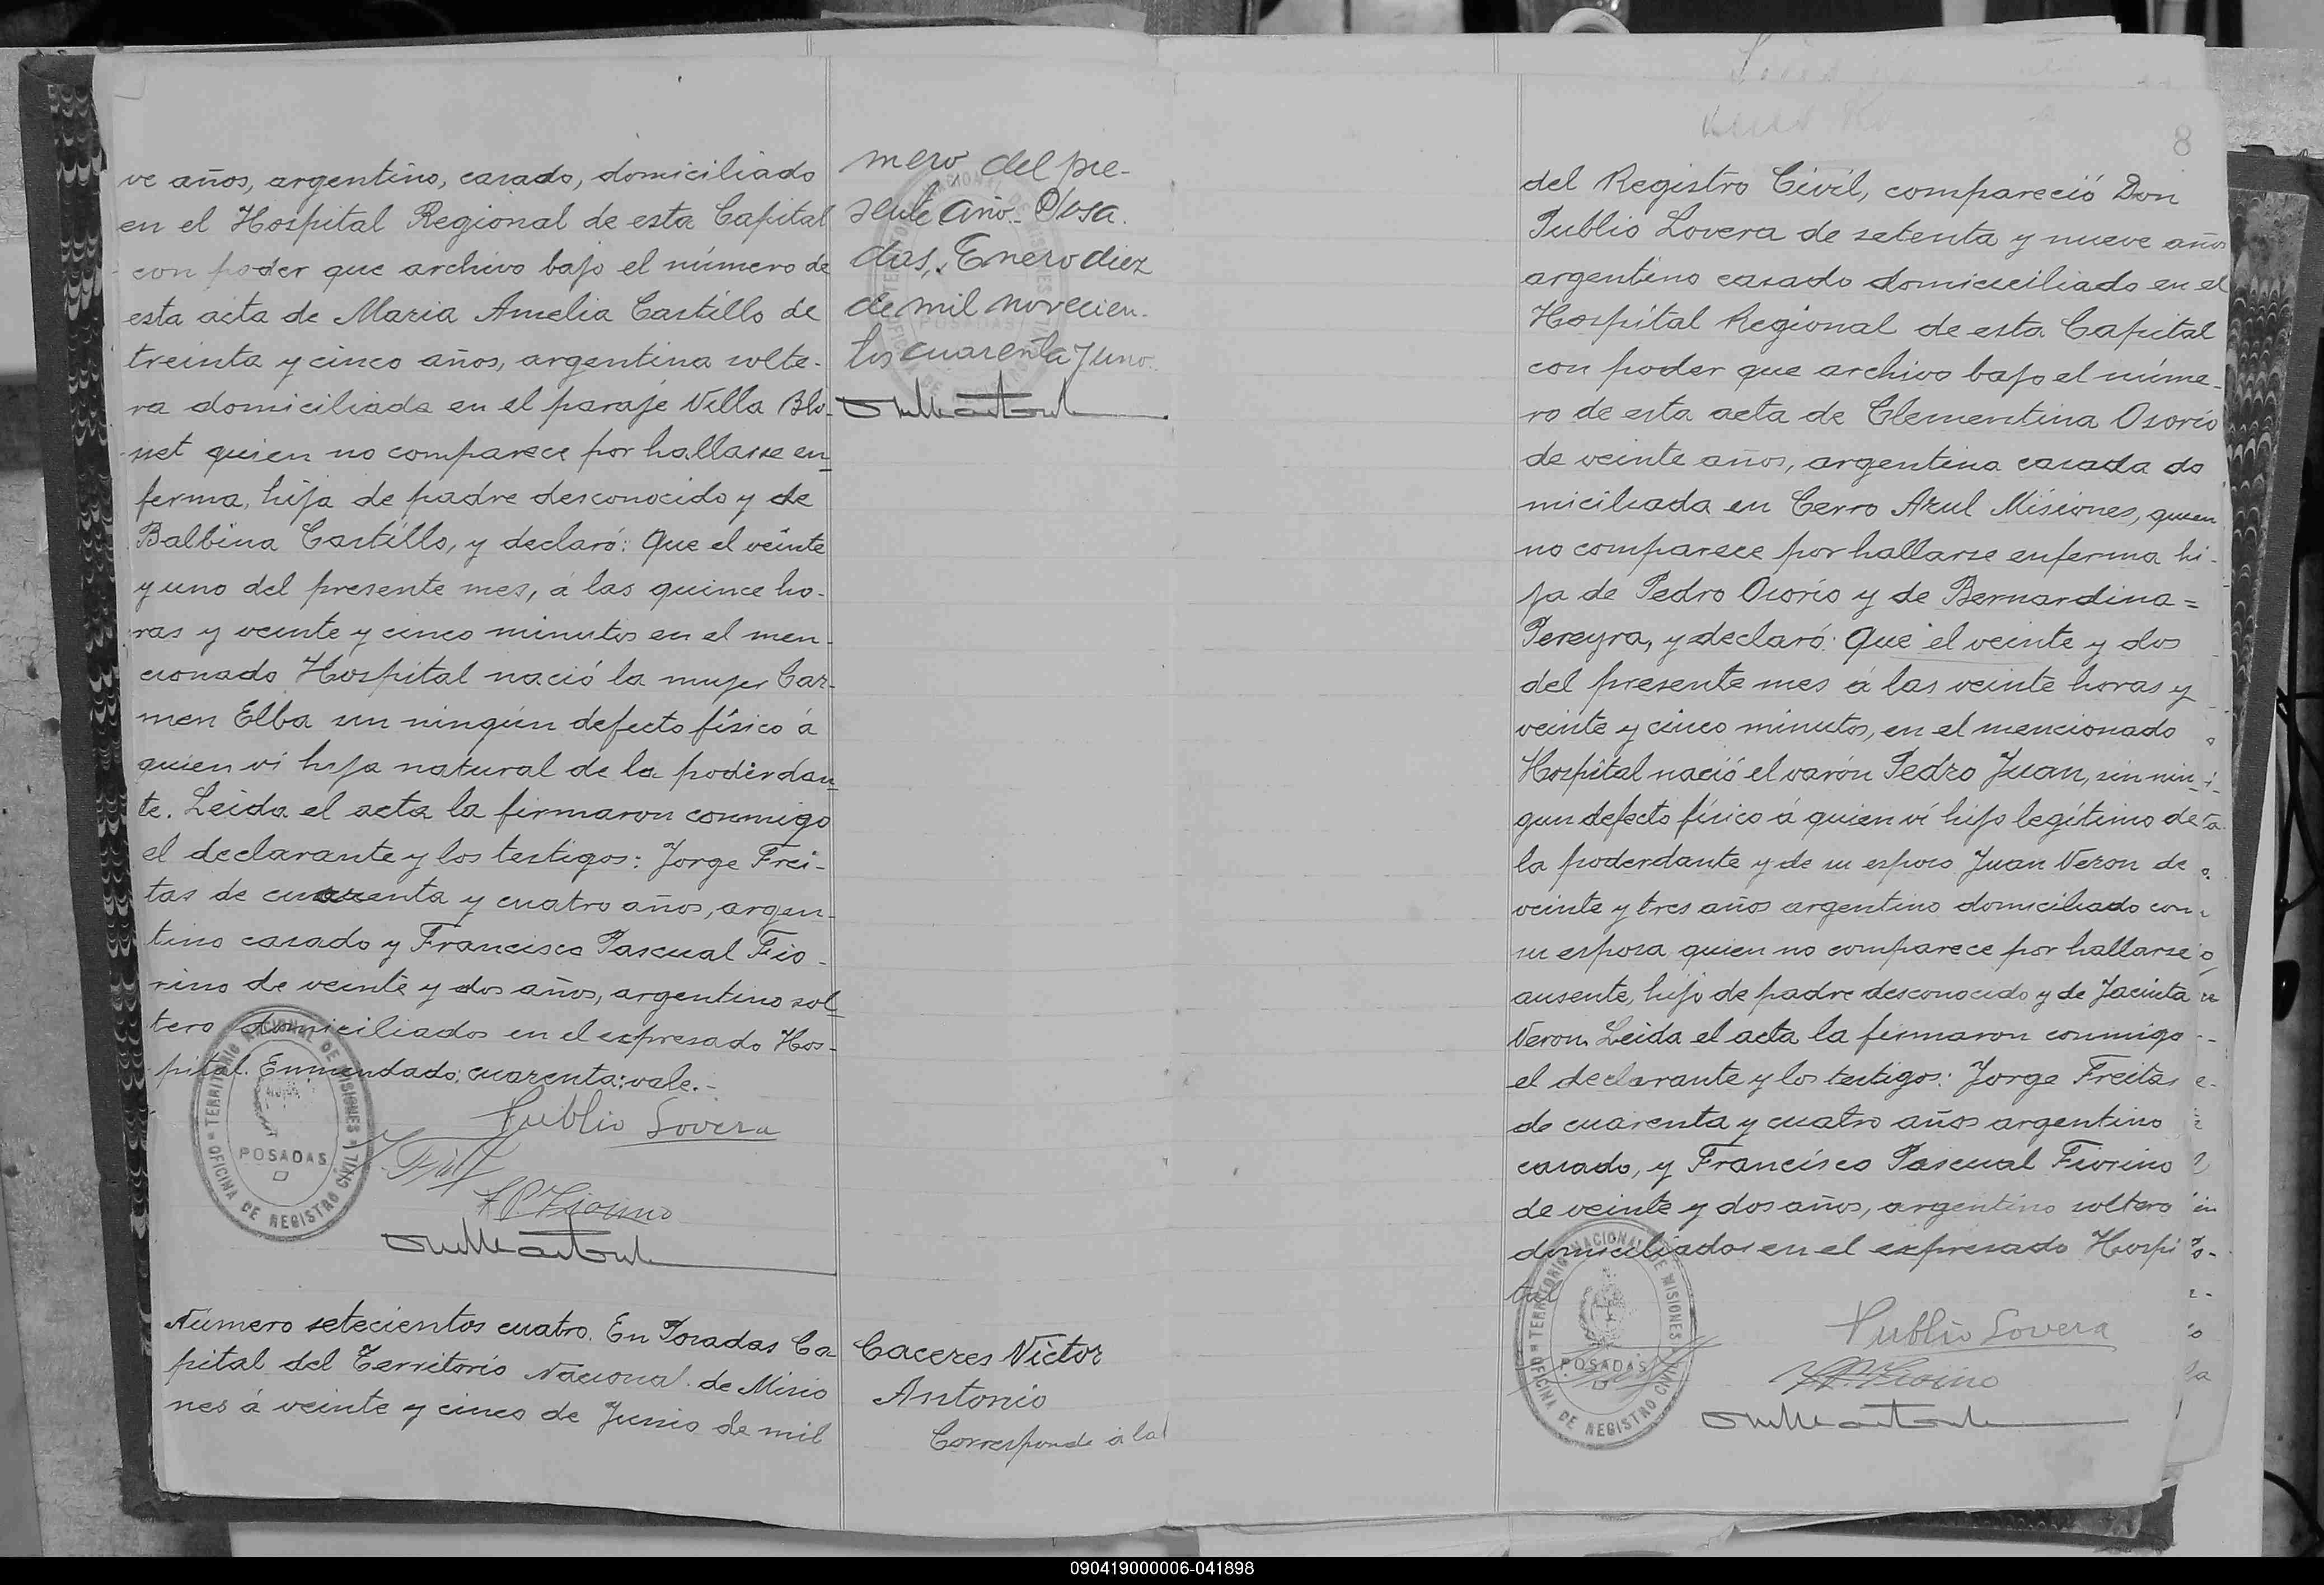 ve años, argentino, casado, domiciliado
en el Hospital Regional de esta Capital
con poder que archivo bajo el número de
esta acta de Maria Amelia Castillo de
treinta y cinco años, argentina solte-
ra domiciliada en el paraje Villa Blo-
net quien no comparece por hallarse en
ferma, hija de padre desconocido y de
Balbina Castillo, y declaró: Que el veinte
y uno del presente mes, á las quince ho-
ras y veinte y cinco minutos en el men-
cionado Hospital nació la mujer Car-
men Elba sin ningún defecto físico á
quien vi hija natural de la poderdan
te. Leida el acta la firmaron conmigo
el declarante y los testigos: Jorge Frei-
tas de cuarenta y cuatro años, argen-
tino casado y Francisco Pascual Fio-
rino de veinte y dos años, argentino sol
tero domiciliados en el expresado Hos-
pital. Enmendado: cuarenta: vale.-
Publio Lovera
F.P. Fiorino
TERRITORIO NACIONAL DE MISIONES
POSADAS
OFICINA DE REGISTRO CIVIL
Número setecientos cuatro. En Posadas Ca-
pital del Territorio Nacional de Misio
nes á veinte y cinco de Junio de mil
mero del pre-
sente año. Posa-
das, Enero diez
de mil novecien-
tos cuarenta y uno.
Caceres Victor
Antonio
Corresponde á la
8
del Registro Civil, compareció Don
Publio Lovera de setenta y nueve años
argentino casado domiciciliado en el
Hospital Regional de esta Capital
con poder que archivo bajo el núme-
ro de esta acta de Clementina Osorio
de veinte años, argentina casada do
miciliada en Cerro Azul Misiones, quien
no comparece por hallarse enferma hi-
ja de Pedro Osorio y de Bernardina=
Pereyra, y declaró: Que el veinte y dos
del presente mes á las veinte horas y
veinte y cinco minutos, en el mencionado
Hospital nació el varón Pedro Juan, sin nin-
gun defecto físico á quien vi hijo legítimo de
la poderdante y de su esposo Juan Veron de
veinte y tres años argentino domiciliado con
su esposa quien no comparece por hallarse
ausente, hijo de padre desconocido y de Jacinta
Veron. Leida el acta la firmaron conmigo
el declarante y los testigos: Jorge Freitas
de cuarenta y cuatro años argentino
casado, y Francisco Pascual Fiorino
de veinte y dos años, argentino soltero
domiciliados en el expresado Hospi
tal
Publio Lovera
F.P. Fiorino
TERRITORIO NACIONAL DE MISIONES
POSADAS
OFICINA DE REGISTRO CIVIL
090419000006-041898